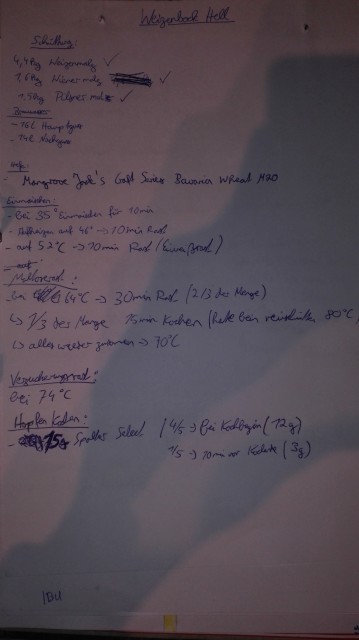 Weizenbock Hell
Schüttung:
4,4kg Weizenmalz ✓
1,6kg Wiener malz ✓
1,5kg Pilsner malz ✓
- 16L Hauptguss
- 14L Nachguss
Hefe:
- Mangrove Jack's Craft Series Bavaria Wheat M20
Einmaischen:
- bei 35° Einmaischen für 10min
- Aufheizen auf 46° → 10min Rast
- auf 52°C → 10min Rast (Eiweißrast)
Maltoserast:
bei 64°C → 30min Rast (2/3 der Menge)
↳ 1/3 der Menge 15min Kochen (
80°C
↳ alles wieder → 70°C
Verzuckerungsrast:
bei 74°C
Hopfen Kochen:
- 15g Spalter Select | 4/5 → bei Kochbeginn (12g)
1/5 → 10min vor Kochende (3g)